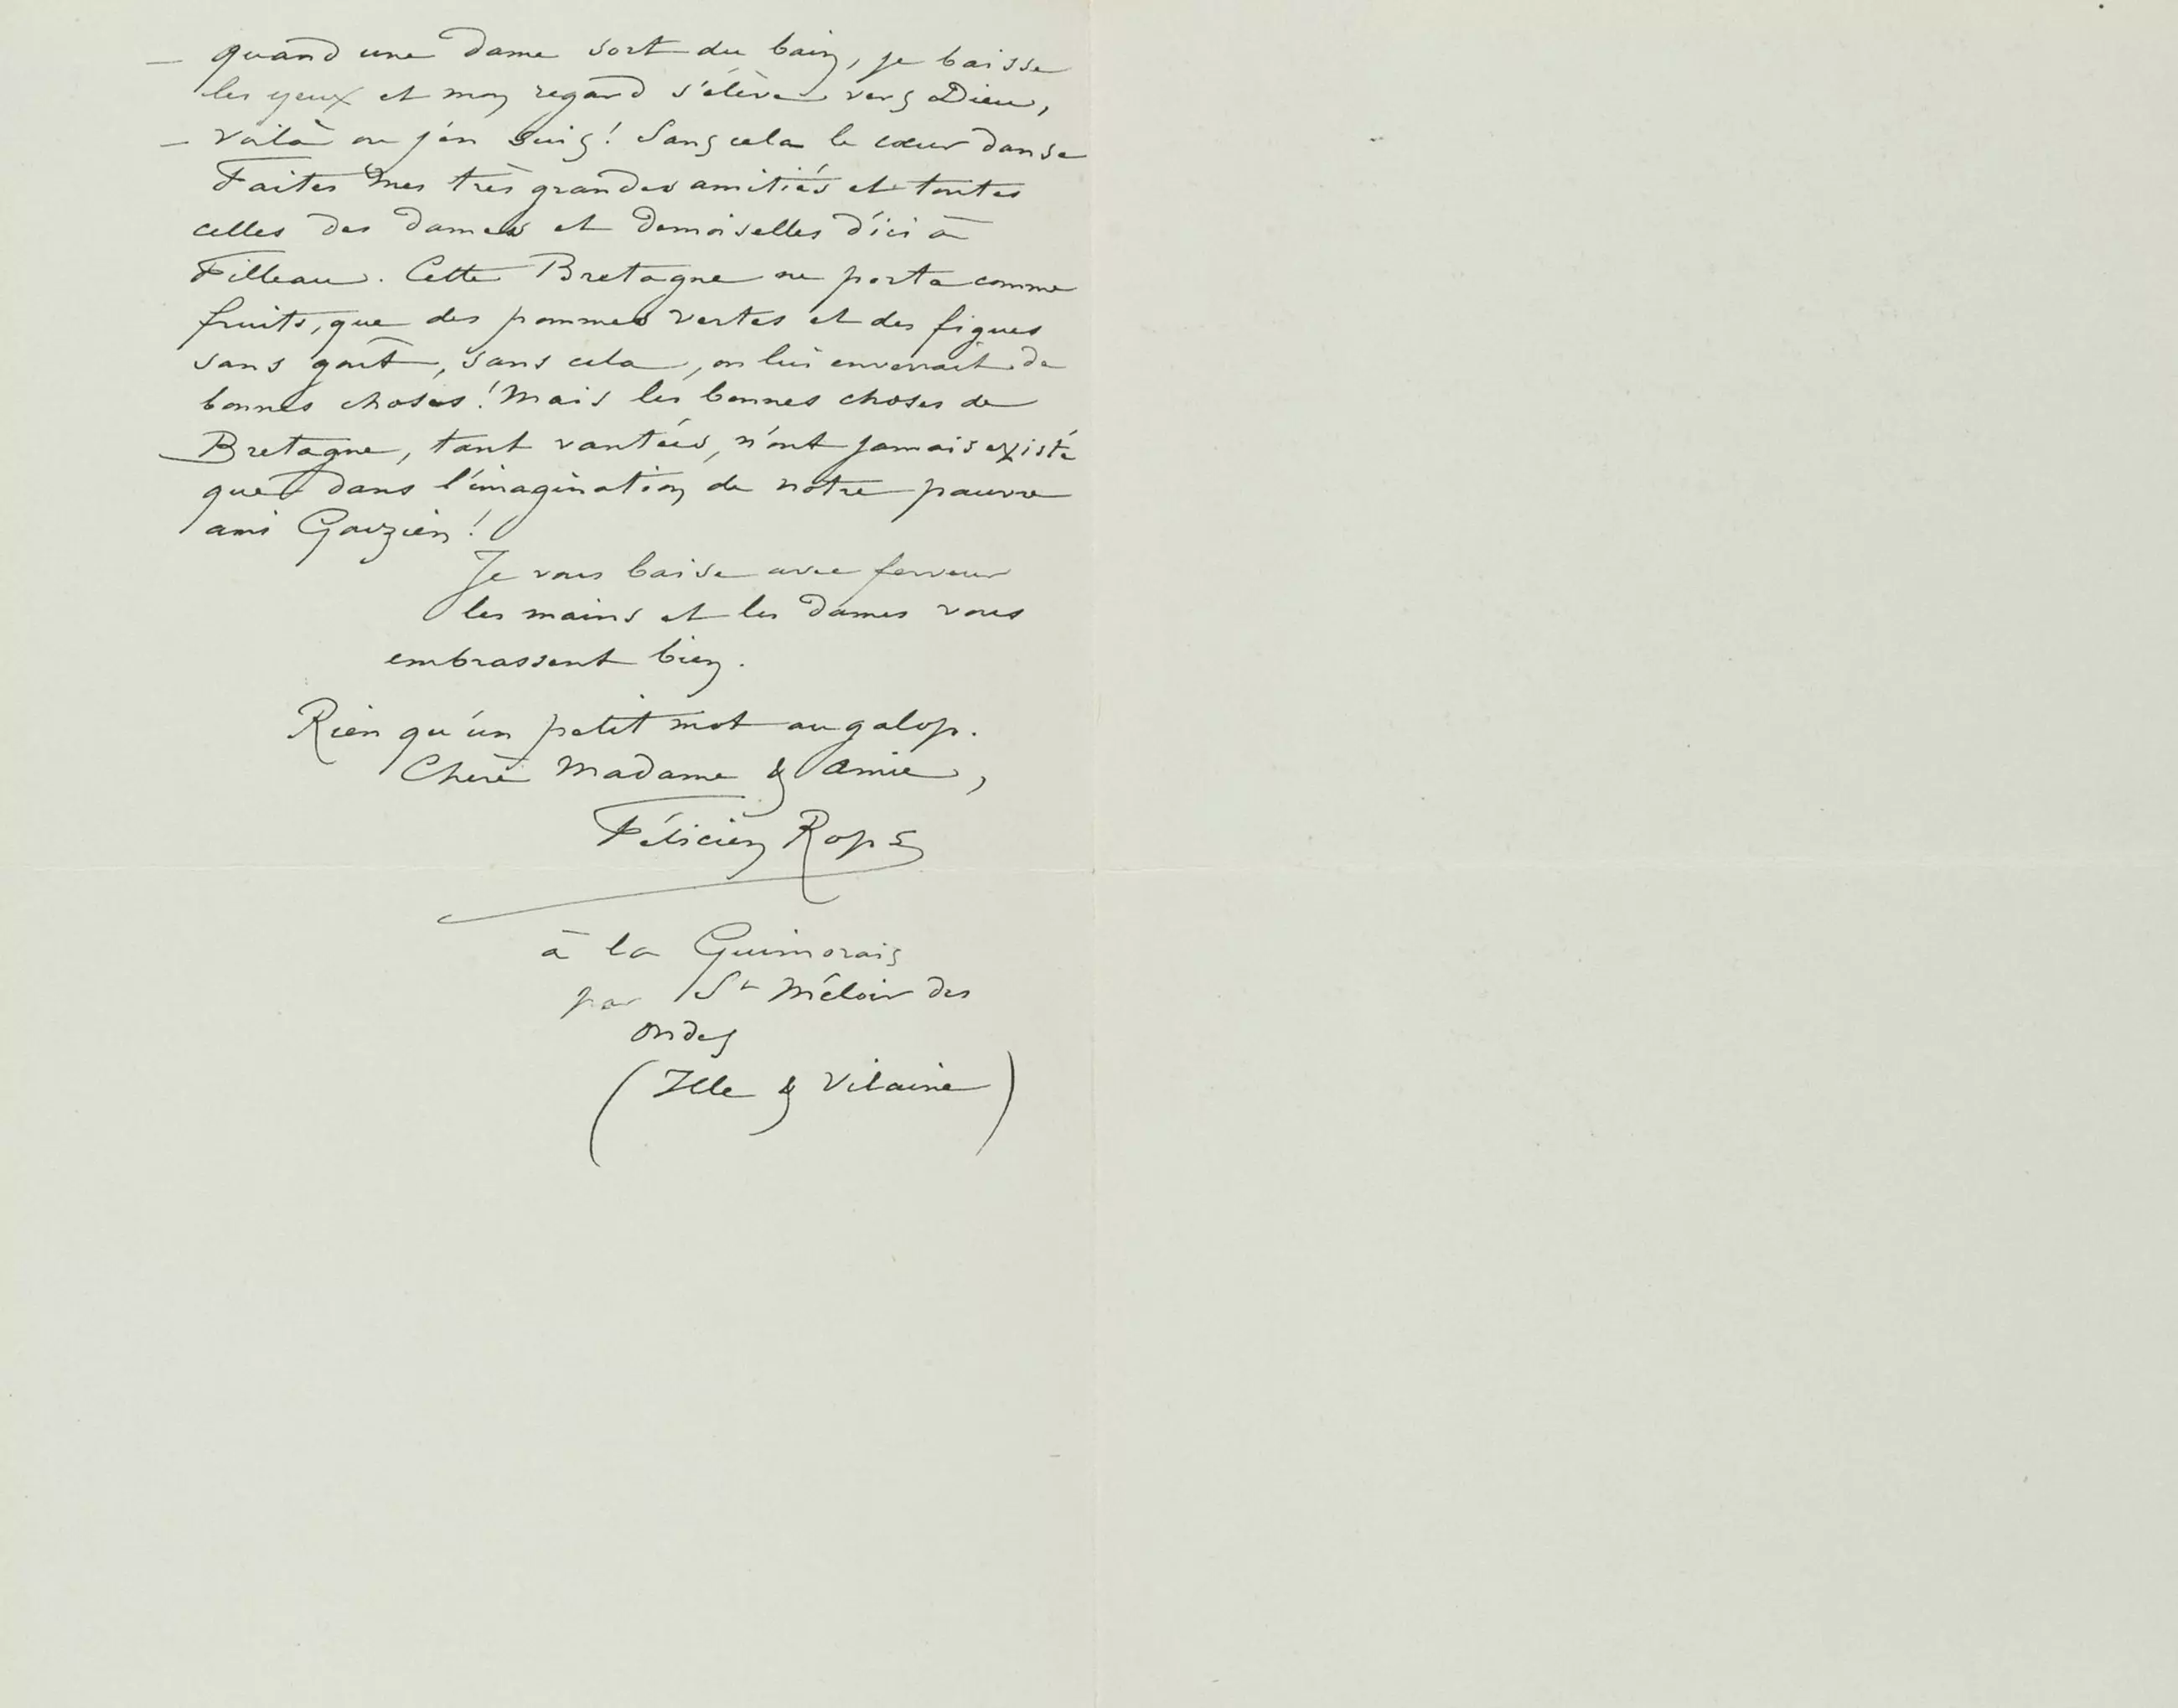 — quand une dame sort du bain, je baisse
les yeux et mon regard s'élève vers Dieu,
— voilà ou j'en suis! Sans cela le cœur danse
Faites mes très grandes amitiés et toutes
celles des dames et demoiselles d'ici à
Filleau. Cette Bretagne ne porte comme
fruits, que des pommes vertes et des figues
sans goût, sans cela, on lui enverrait de
bonnes choses! Mais les bonnes choses de
Bretagne, tant vantées, n'ont jamais existé
que dans l'imagination de notre pauvre
ami Gouzien!
Je vous baise avec ferveur
les mains et les dames vous
embrassent bien.
Rien qu'un petit mot au galop.
Chère Madame & Amie,
Félicien Rops
à la Guimorais
par St Méloir des
Ondes
(Ille & Vilaine)